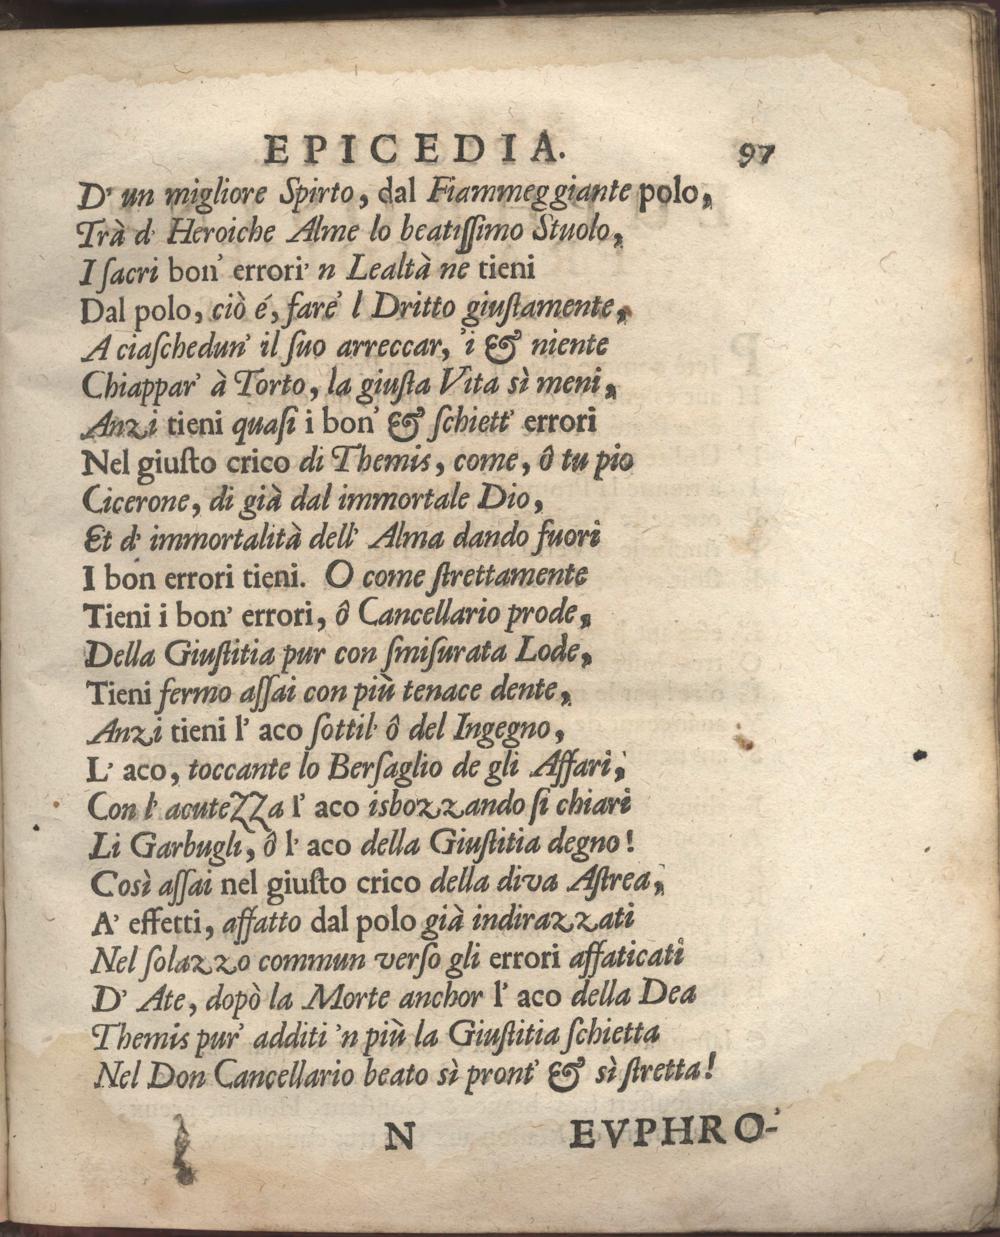 EPICEDIA. 97
D' un migliore Spirto, dal Fiammeggiante polo,
Trà d' Heroiche Alme lo beatiſſimo Stuolo,
I ſacri bon' errori' n Lealtà ne tieni
Dal polo, ciò é, fare' l Dritto giuſtamente,
A ciaſchedun' il ſuo arreccar, 'i & niente
Chiappar' à Torto, la giuſta Vita sì meni,
Anzi tieni quaſi i bon' & ſchiett' errori
Nel giuſto crico di Themis, come, ô tu pio
Cicerone, di già dal immortale Dio,
Et d' immortalità dell' Alma dando fuori
I bon errori tieni. O come ſtrettamente
Tieni i bon' errori, ô Cancellario prode,
Della Giuſtitia pur con ſmiſurata Lode,
Tieni fermo aſſai con più tenace dente,
Anzi tieni l' aco ſottil' ô del Ingegno,
L' aco, toccante lo Berſaglio de gli Affari,
Con l' acutezza l' aco isbozzando ſi chiari
Li Garbugli, ô l' aco della Giuſtitia degno!
Così aſſai nel giuſto crico della diva Aſtrea,
A' effetti, affatto dal polo già indirazzati
Nel ſolazzo commun verſo gli errori affaticati
D' Ate, dopò la Morte anchor l' aco della Dea
Themis pur' additi 'n più la Giuſtitia ſchietta
Nel Don Cancellario beato sì pront' & sì ſtretta!
N EVPHRO-